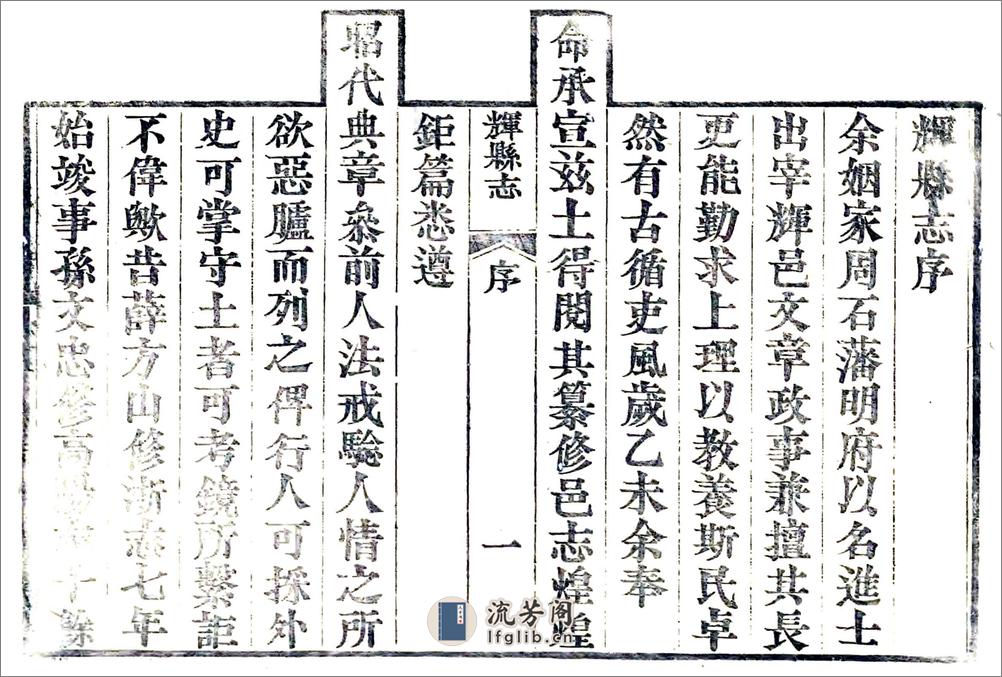 輝縣志序
余姻家周石藩明府以名進士
出宰輝邑文章政事兼擅其長
更能勤求上理以教養斯民卓
然有古循吏風歲乙未余奉
命承宣兹土得閱其纂修邑志煌煌
輝縣志
序
一
鉅篇悉遵
昭代典章叅前人法戒驗人情之所
欲惡臚而列之俾行人可採外
史可掌守土者可考鏡所繫詎
不偉歟昔薛方山修浙志七年
始竣事孫文忠修高
流芳阁
lfglib.cn